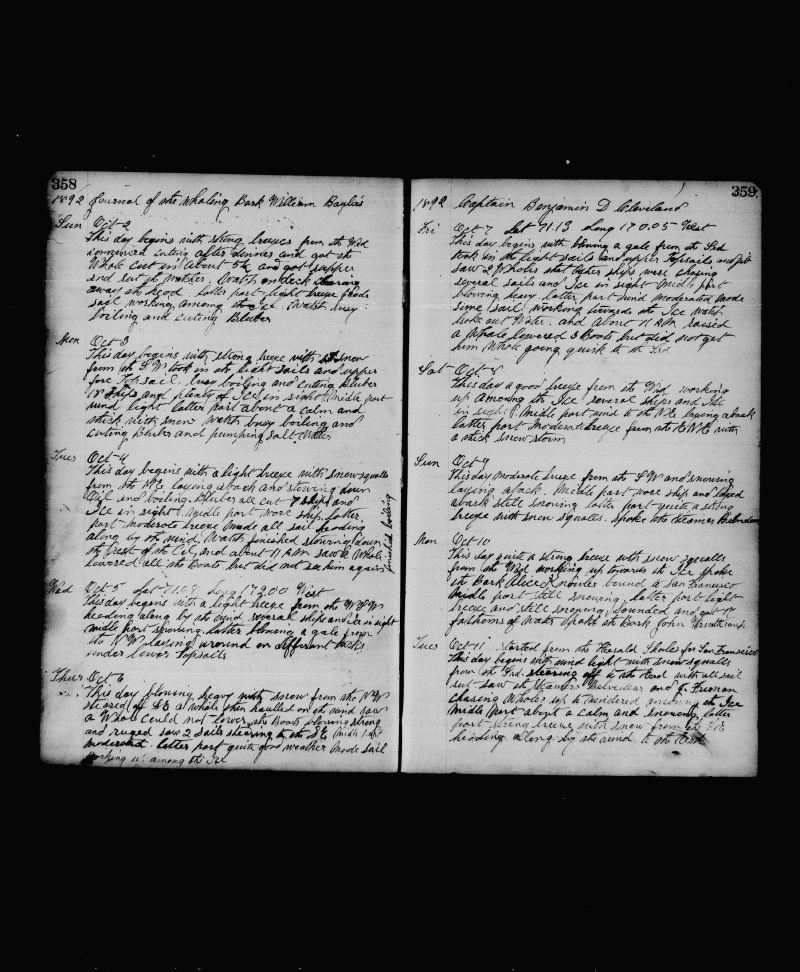 358
1892 Journal of the Whaling Bark William Baylies
Sun Oct 2
This day begins with strong breeze from the Wd
commenced cuting after dinner and got the
Whole cut in about 5h and got supper
and cut for Mother. Watch on deck clearing
away the head latter part light breeze made
sail working among the Ice Watch busy
boiling and cuting Bluber
Mon Oct 3
This day begins with strong breeze with snow
from the S W took in the light sails and upper
fore Topsail. busy boiling and cuting Bluber
18 Ships and plenty of Ice in sight. Midle part
wind light latter part about a calm and
thick with snow Watch busy boiling and
cuting Bluber and pumping salt Water
Tues Oct 4
This day begins with a light breeze with snow squalls
from the NE laying aback and stowing down
Oil and boiling. Bluber all cut 7 ships and
Ice in sight. Midle part wore ship latter
part moderate breeze made all sail heading
along by the wind. Watch finished stowing down
the frest of the Oil, and about 11 AM saw a Whale
lowered all the Boats but did not see him again
finished boiling
Wed Oct 5 Lat 71.08 Long 172.00 West
This day begins with a light breeze from the W S W
heading along by the wind several ships and Ice in sight
midle part snowing. latter blowing a gale from
the N W laying around on different tacks
under lower Topsails
Thur Oct 6
This day blowing heavy with snow from the N W
steared off S E a while then haulled on the wind saw
a Whale Could not lower the Boats blowing strong
and ruged saw 2 sails stearing to the S E Midle part
moderate latter part quite good weather Made sail
working up among the Ice
359
1892 Captain Benjamin D Cleveland
Fri Oct 7 Lat 71.13 Long 170.05 West
This day begins with blowing a gale from the Nrd
took in the light sails and upper Topsails and jib
saw 2 Wholes that other ships were chasing
several sails and Ice in sight Midle part
blowing heavy latter part wind moderated made
some sail working towards the Ice watch
broke out Water. and about 11 AM raised
a Whale lowered 3 Boats but did not get
him Whale going quick to the Nrd
Sat Oct 8
This day a good breeze from the Wrd working
up among the Ice several ships and Ice
in sight. Midle part wind to the N E laying aback
latter part moderate breeze from the E N E with
a thick snow storm
Sun Oct 9
This day moderate breeze from the S W and snowing
laying aback. Midle part wore ship and layed
aback still snowing latter part quite a strong
breeze with snow squalls. Spoke the steamer Balaena
Mon Oct 10
This day quite a strong breeze with snow squalls
from the Wrd working up towards the Ice Spoke
the Bark Alice Knowles bound to San Francisco
Midle part still snowing latter part light
breeze and still snowing sounded and got 17
fathoms of water spoke the Bark John Winthrop
Tues Oct 11 Started from the Herald Sholes for San Francisco
This day begins with wind light with snow squalls
from the Nrd. stearing off to the Esrd with all sail
set saw the steamers Belvedear and J Freeman
chasing Wholes up to windered among the Ice
Midle part about a calm and snowing latter
part strong breeze with snow from the S E
heading along by the wind to the Esrd